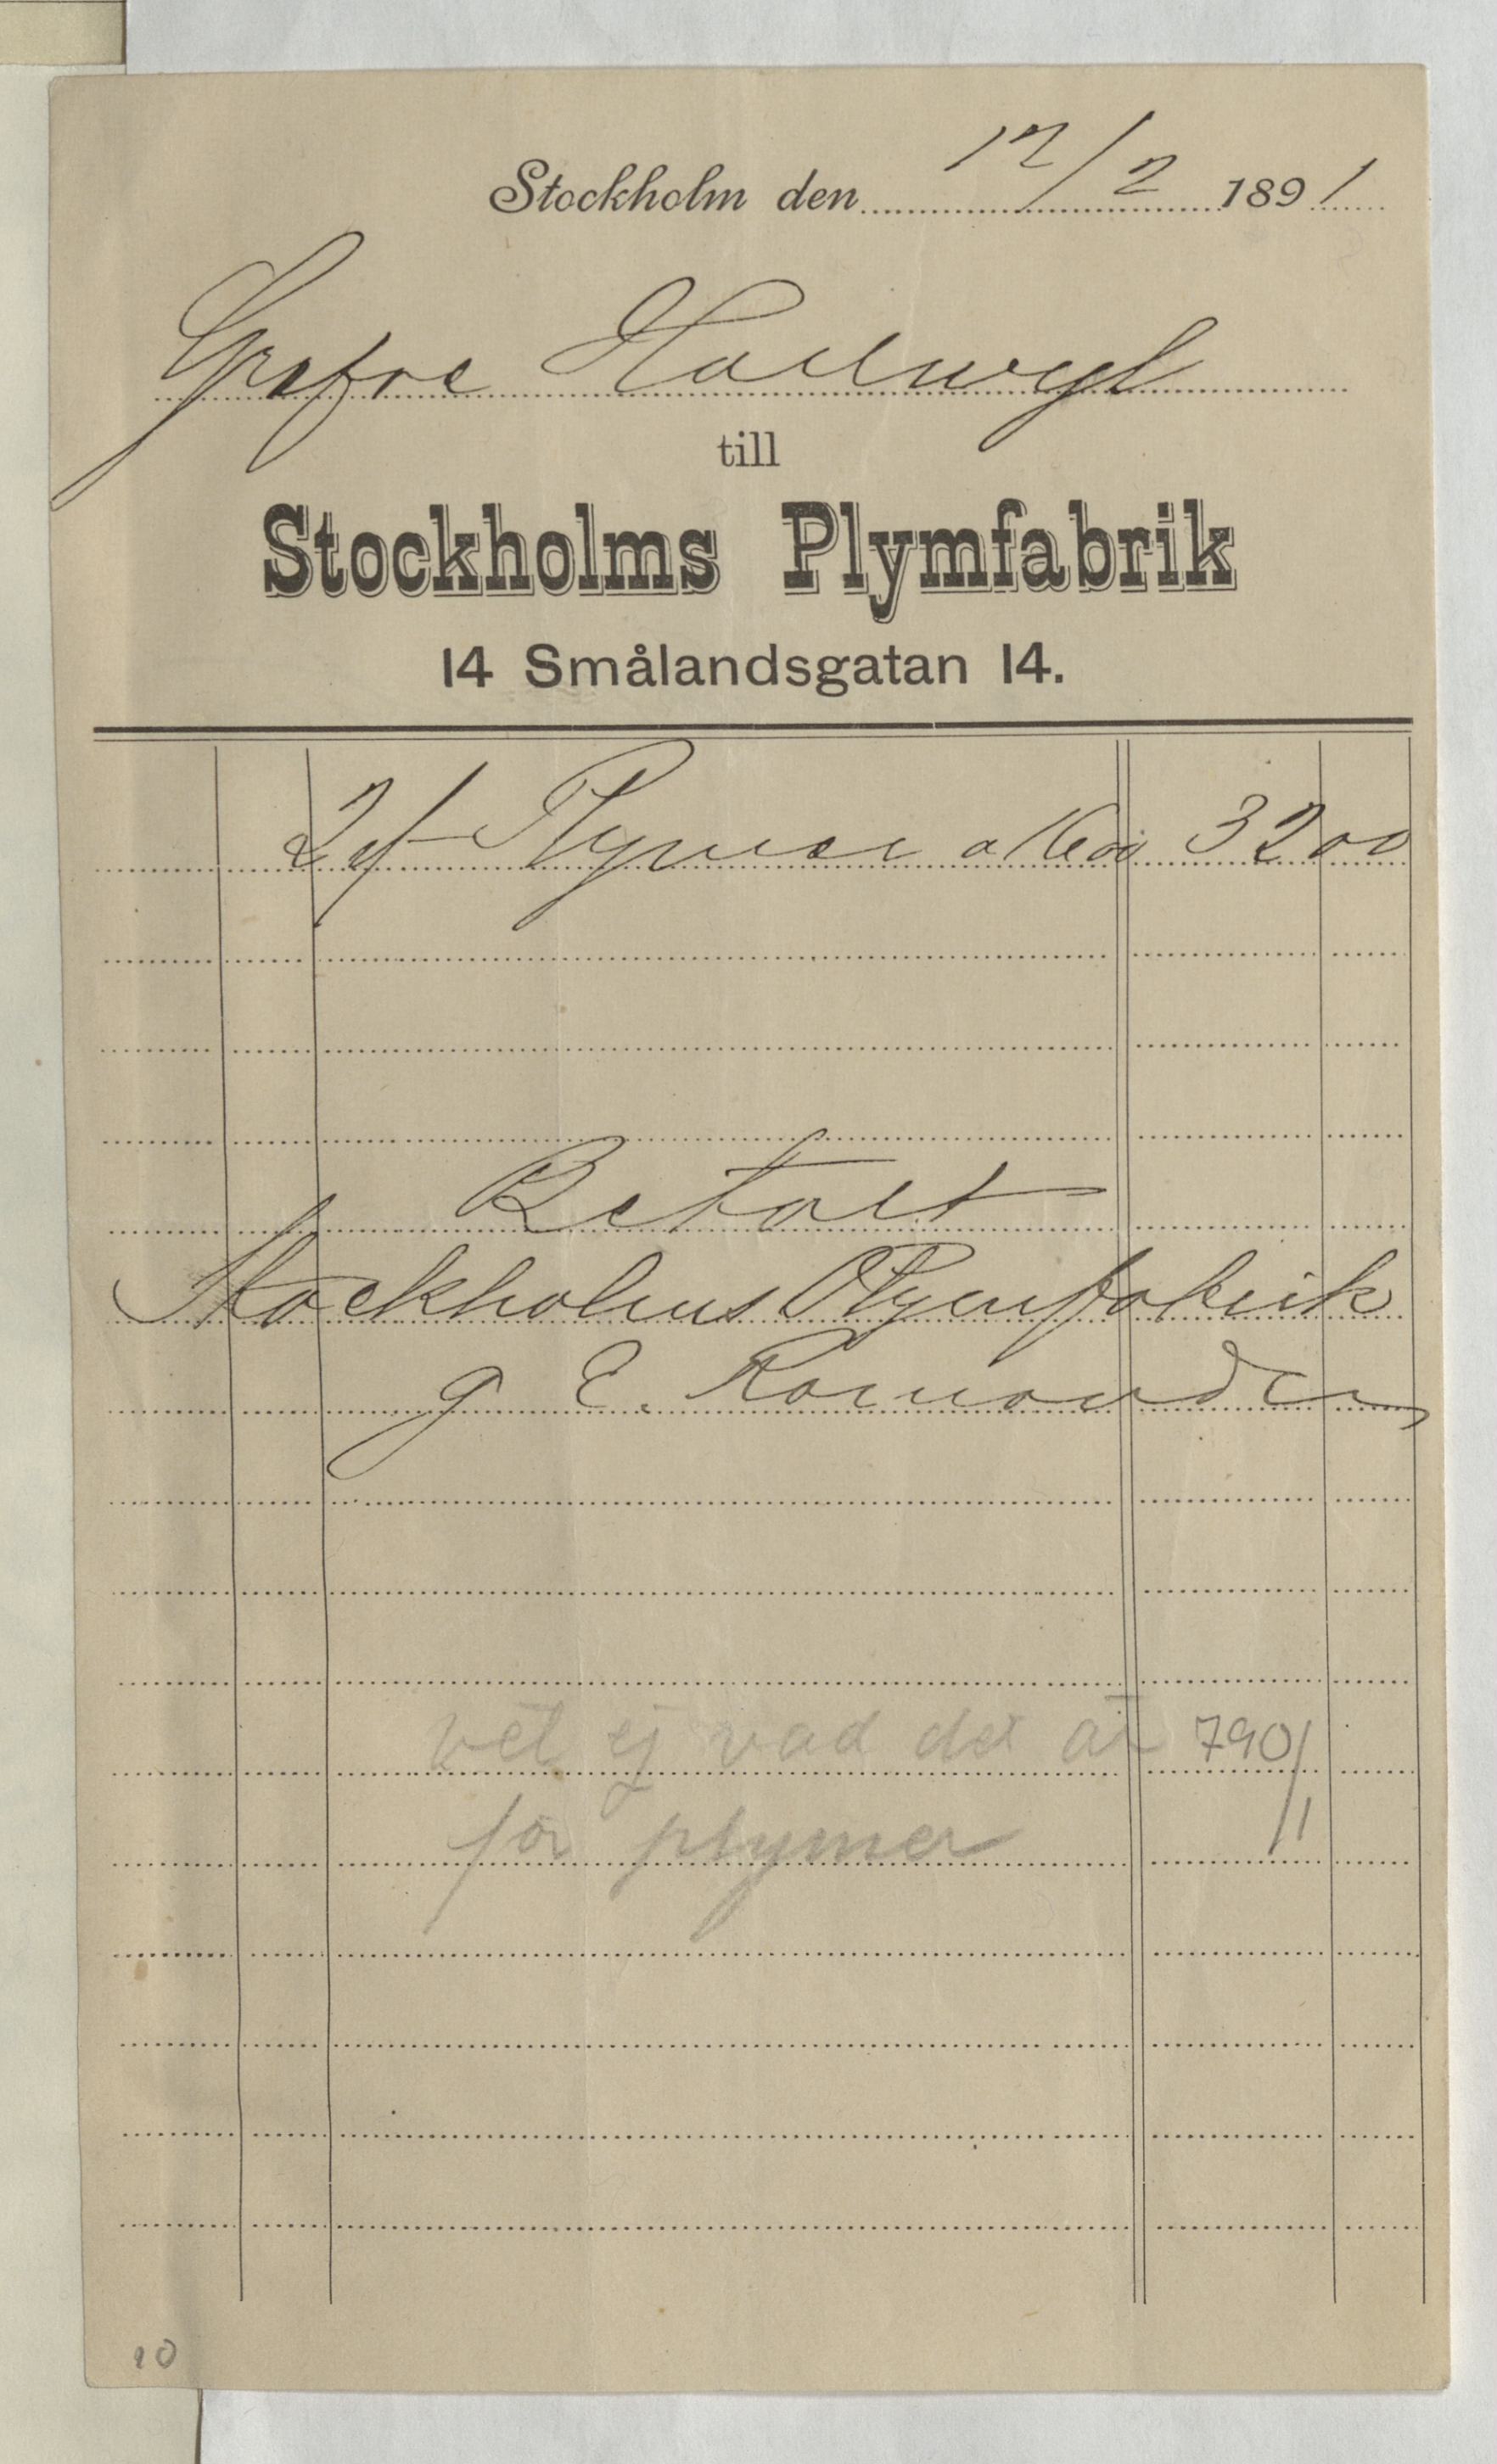 Stockholm den 17/2 1891
Grefve Hallwyl
till
Stockholms Plymfabrik
14 Smålandsgatan 14.
2 st Plymer a 16 00 32 00
Betalt
Stockholms Plymfabrik
g E. Romander
vet ej vad det är 790/1
för plymer
10